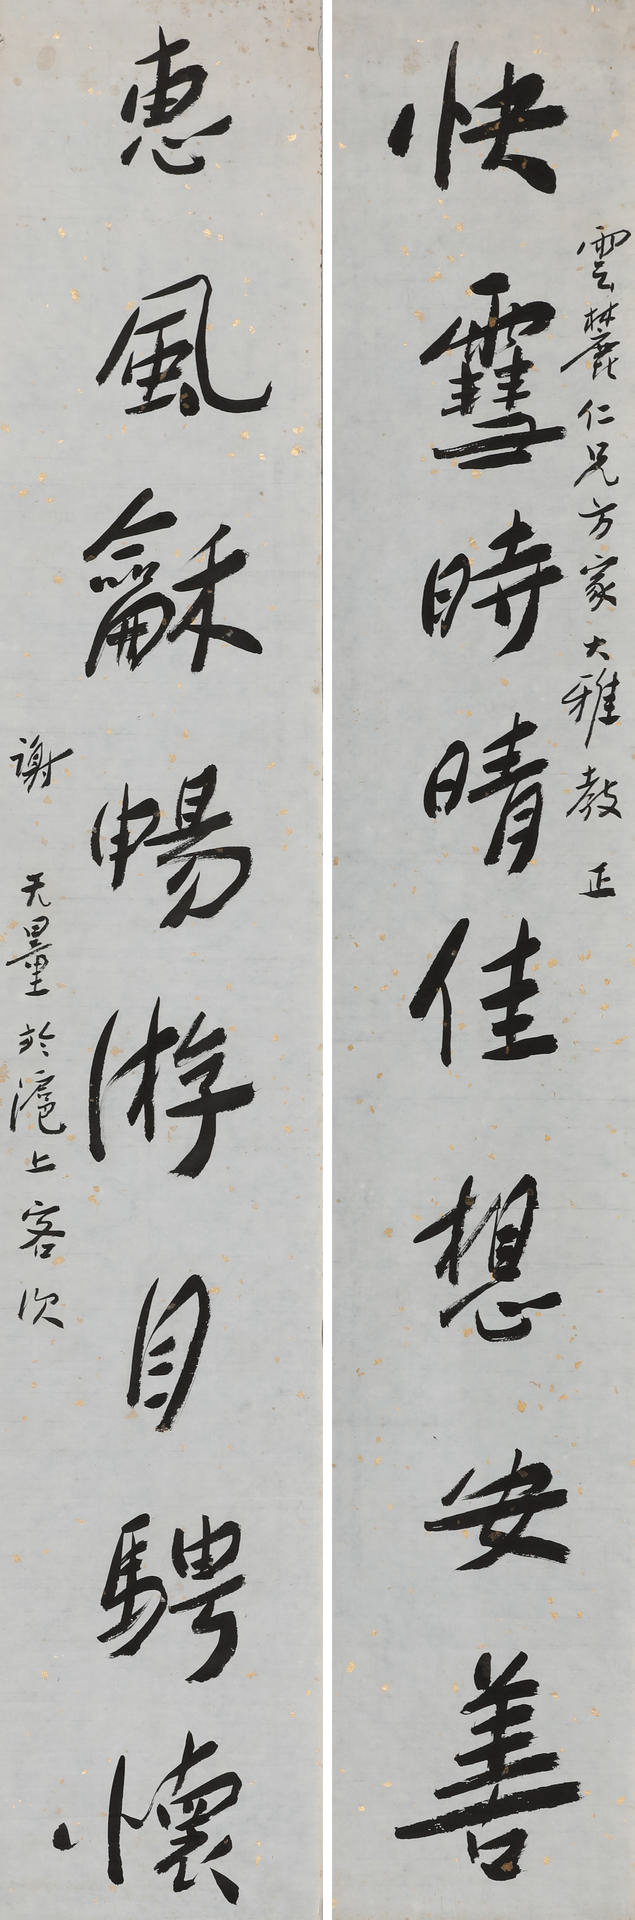 雲麓仁兄方家大雅教正
快雪時晴佳想安善
惠風龢暢游目騁懷
謝无量於滬上客次